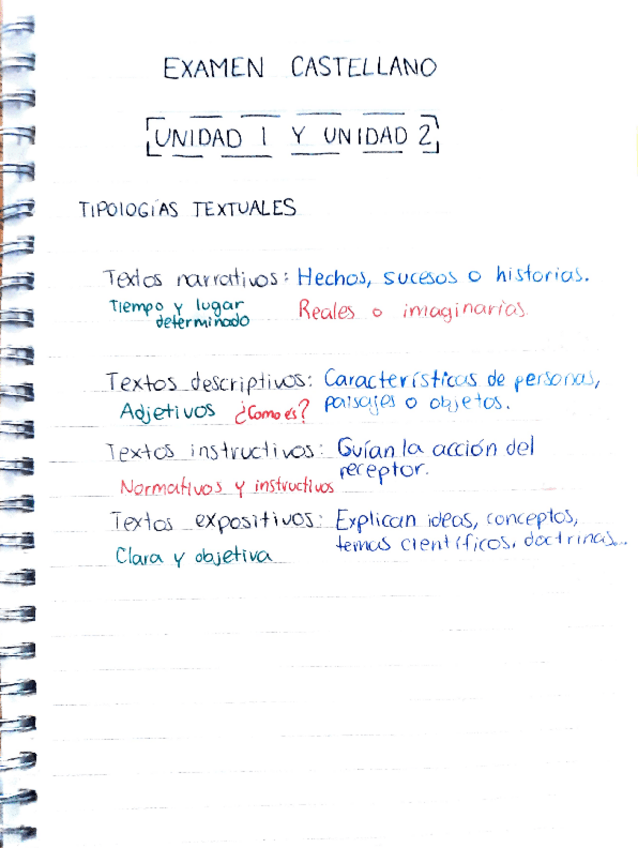 EXAMEN CASTELLANO
UNIDAD 1 Y UNIDAD 2
TIPOLOGÍAS TEXTUALES
Textos narrativos: Hechos, sucesos o historias.
Tiempo y lugar determinado
Reales o imaginarias
Textos descriptivos: Características de personas,
paisajes o objetos.
Adjetivos ¿Como es?
Textos instructivos: Guían la acción del
receptor.
Normativos y instructivos
Textos expositivos: Explican ideas, conceptos,
temas científicos, doctrinas...
Clara y objetiva